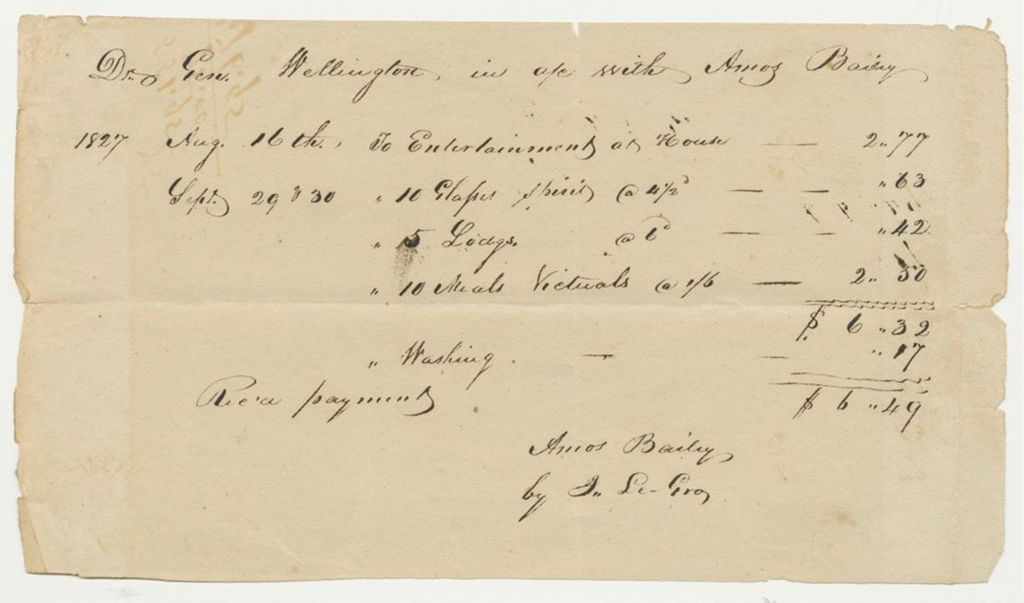 Dr. Gen. Wellington, in a/c with Amos Baily
1827 Aug. 16th. To Entertainment at House — 2.. 77
Sept. 29 & 30 " 10 Glasses spirit @ 4½d — — " 63
" 5 Lodgs. @ 6d — " 42
" 10 Meals Victuals @ 1/6 — 2.. 50
$ 6 .. 32
" Washing. — — " 17
$ 6 .. 49
Rec'd payment
Amos Baily
by Le-Gro